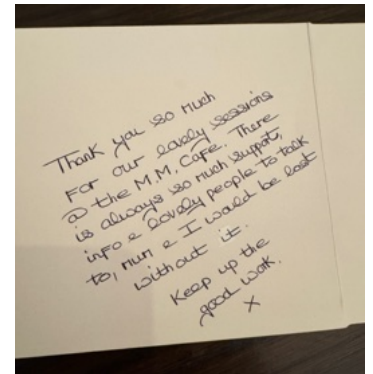 Thank you so much
For our lovely sessions
@ the M.M. Cafe. There
is always so much support,
info & lovely people to talk
to, mum & I would be lost
without it.
Keep up the
good work.
X